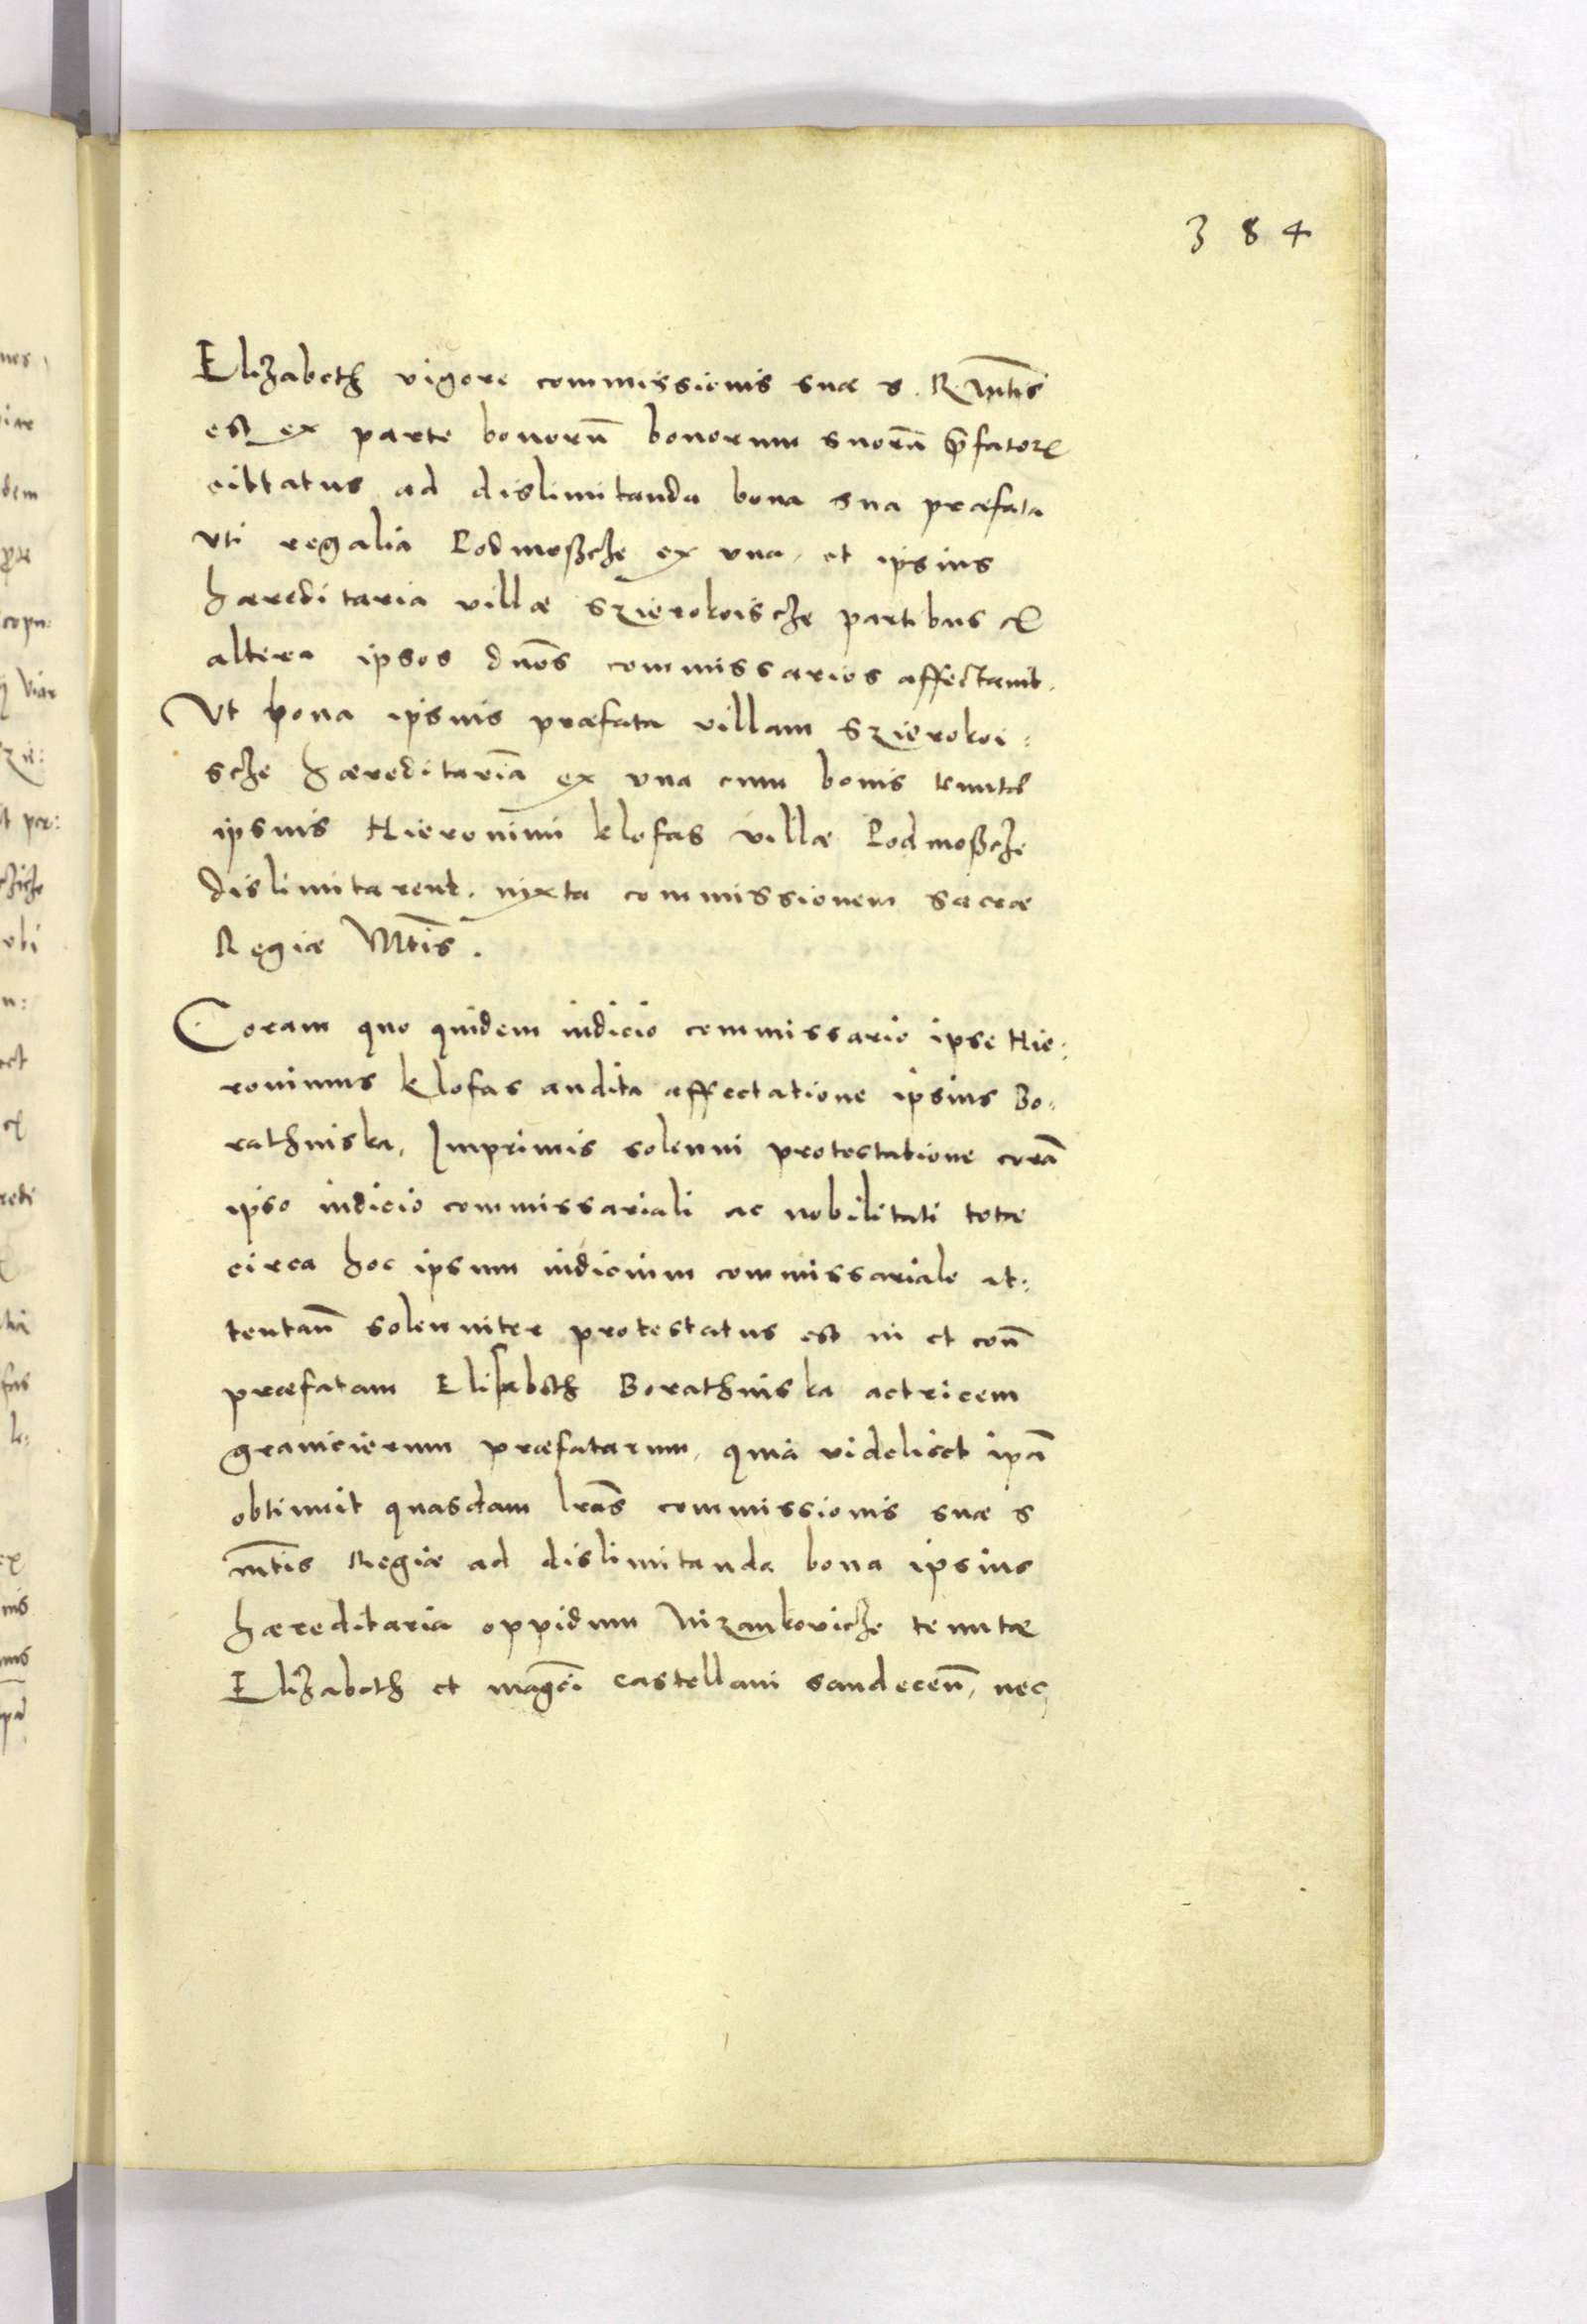 384
Elizabeth vigore commissionis suæ s. R. Mtis
est ex parte bonorū bonorum suorū p̄fatorꝝ
cittatus ad dislimitanda bona sua præfata
vti regalia Podmoßche ex vna, et ipsius
hæreditaria villæ Szierokoische partibus ex
altera ipsos dnōs commissarios affectavit.
Vt bona ipsius præfata villam Szierokoi:
sche hæreditariā ex vna cum bonis tenutæ
ipsius Hieronimi Klofas villæ Podmoßche
dislimitarent. iuxta commissionem sacræ
Regiæ Mtis.
Coram quo quidem iudicio commissario ipse Hie:
ronimus Klofas audita affectatione ipsius Bo:
rathniska, Imprimis solenni protestatione corā
ipso iudicio commissariali ac nobilitati totæ
circa hoc ipsum iudicium commissariale at:
tentañ solenniter protestatus est in et coñ
præfatam Elisabeth Borathniska actricem
granicierum præfatarum, quia videlicet ipā
obtinuit quasdam lrās commissionis suæ s
mtis Regiæ ad dislimitanda bona ipsius
hæreditaria oppidum Nizankoviche tenutæ
Elizabeth et magci castellani sandeceñ, nec